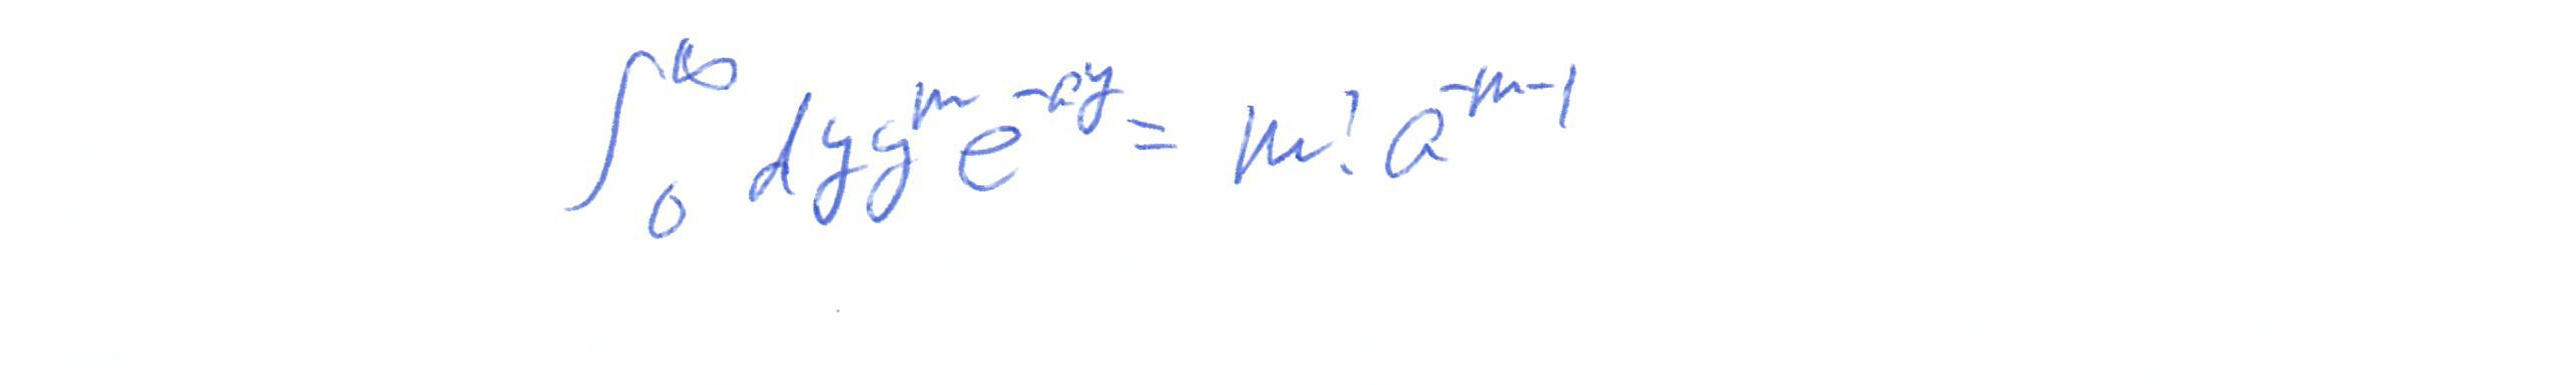 \int_0^\infty dy y^m e^{-ay} = m! a^{-m-1}